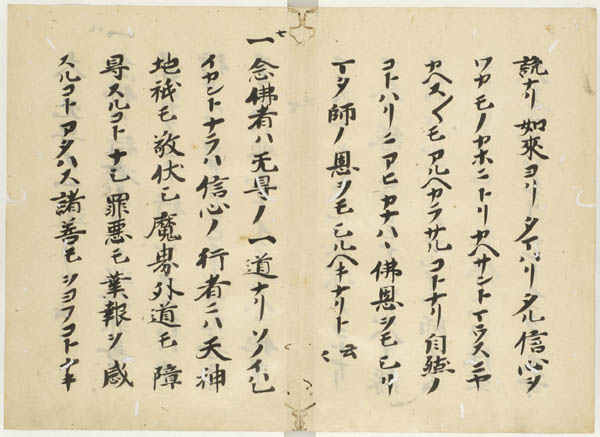 説ナリ如來ヨリタマハリタル信心ヲ
ワカモノカホニトリカヘサントマウスニヤ
カヘス〱モアルヘカラサルコトナリ自然ノ
コトハリニアヒカナハヽ佛恩ヲモシリ
マタ師ノ恩ヲモシルヘキナリト云〻
七
一念佛者ハ无㝵ノ一道ナリソノイハレ
イカントナラハ信心ノ行者ニハ天神
地祇モ敬伏シ魔界外道モ障
㝵スルコトナシ罪悪モ業報ヲ感
スルコトアタハス諸善モヲヨフコトナキ